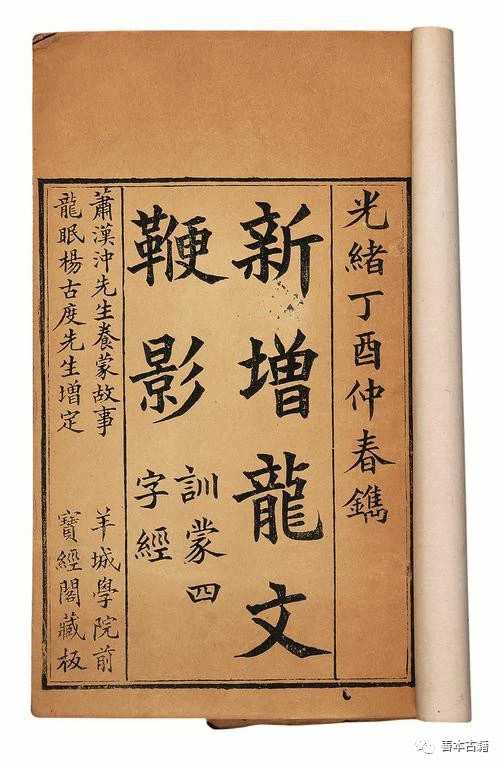 光緒丁酉仲春鐫
新增龍文
鞭影
訓蒙四
字經
蕭漢沖先生養蒙故事
龍眠楊古度先生增定
羊城學院前
寶經閣藏板
善本古籍